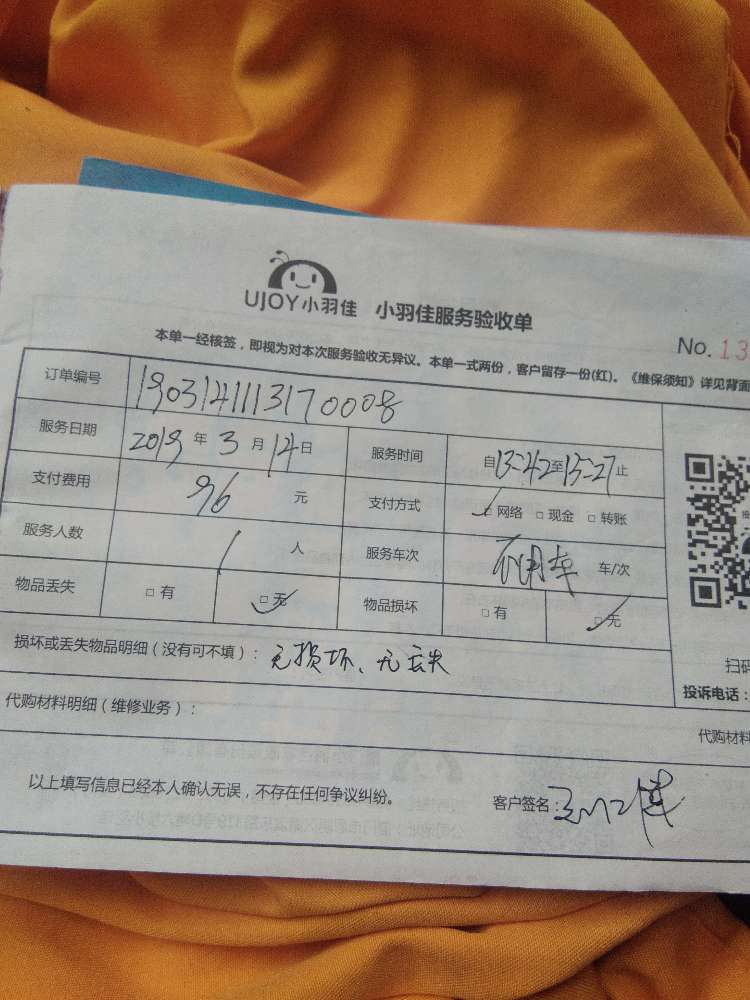 UJOY小羽佳 小羽佳服务验收单
No. 13
本单一经核签，即视为对本次服务验收无异议。本单一式两份，客户留存一份(红)。《维保须知》详见背面
订单编号 1903141113170008
服务日期 2019 年 3 月 14 日 服务时间 自13:42至15:27止
支付费用 96 元 支付方式 ✓网络 □现金 □转账
服务人数 1 人 服务车次 不用车 车/次
物品丢失 □有 □✓无 物品损坏 □有 □✓无
扫码
损坏或丢失物品明细（没有可不填）：无损坏、无丢失
投诉电话：
代购材料明细（维修业务）：
代购材料
以上填写信息已经本人确认无误，不存在任何争议纠纷。 客户签名：